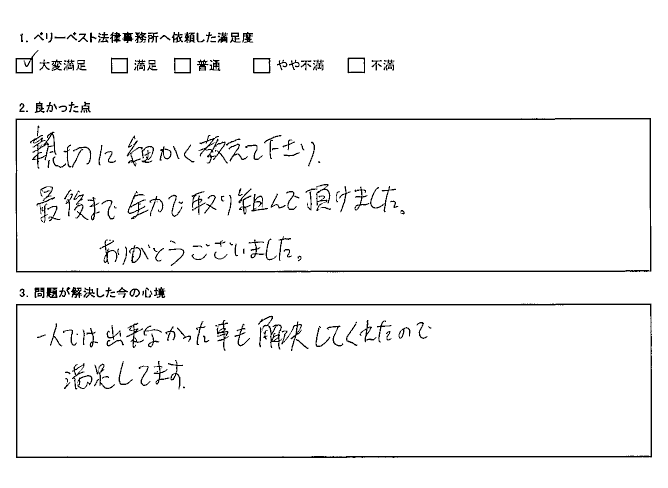 1. ベリーベスト法律事務所へ依頼した満足度
☑ 大変満足 □ 満足 □ 普通 □ やや不満 □ 不満
2. 良かった点
親切に細かく教えて下さり、
最後まで全力で取り組んで頂けました。
ありがとうございました。
3. 問題が解決した今の心境
一人では出来なかった事も解決してくれたので
満足してます。